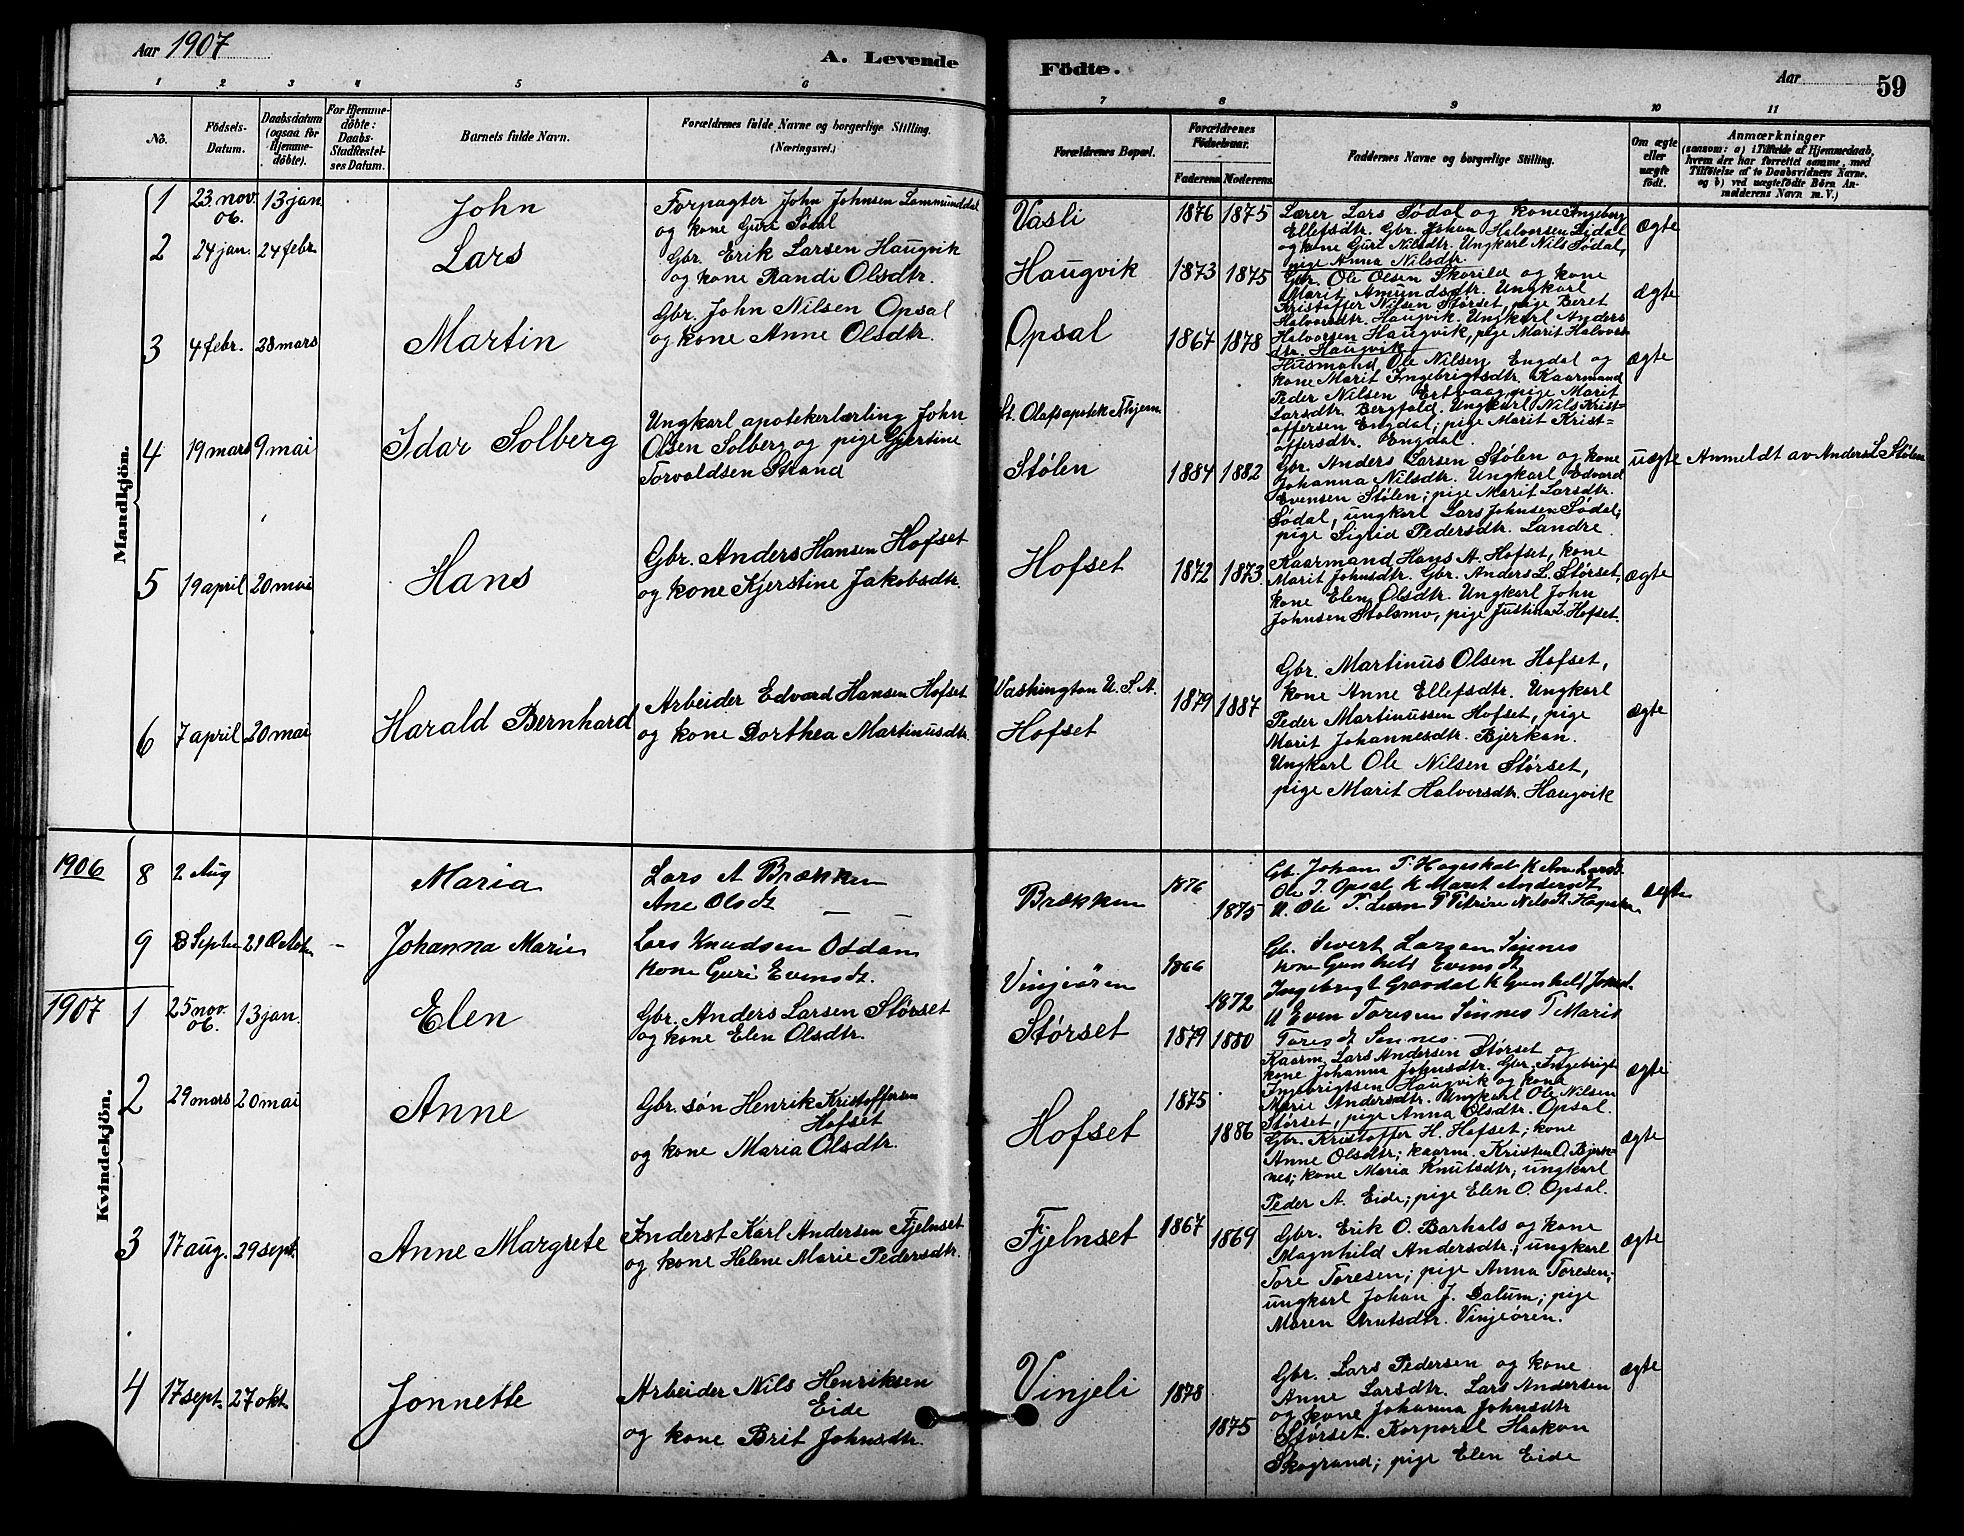 Aar 1907
A. Levende Födte.
Aar
59
1 2 3 4 5 6 7 8 9 10 11
No.
Födsels-
Datum.
Daabsdatum
(ogsaa for
Hjemme-
døbte).
For Hjemme-
døbte:
Daabs-
Stadfæstel-
ses Datum.
Barnets fulde Navn.
Forældrenes fulde Navne og borgerlige Stilling.
(Næringsvei.)
Forældrenes Bopæl.
Forældrenes
Födselsaar.
Faderens Moderens
Faddernes Navne og borgerlige Stilling.
Om ægte
eller
uægte
født.
Anmærkninger
(saasom: a) i Tilfælde af Hjemmedaab,
hvem der har forrettet samme, med
Tilföielse af to Daabsvidners Navne.
og b) ved uægtefödte Börn An-
melderens Navn m. V.)
Mandkjön.
1 23 nov. 06. 13 jan John
Forpagter John Johnsen Lommunddal
og kone Guri Sødal
Vasli 1876 1875
Lærer Lars Sødal og kone Ingeborg
Ellefsdtr. Gbr. Johan Halvorsen
og kone Guri Nilsdtr. Ungkarl Nils Sødal,
pige Anna Nilsdtr.
ægte
2 24 jan. 24 febr. Lars
Gbr. Erik Larsen Haugvik
og kone Randi Olsdtr.
Haugvik 1873 1875
Gbr. Ole Olsen Skorild og kone
Marit Amundsdtr. Ungkarl
Kristoffer Nilsen Størset, pige Beret
Halvorsdtr. Haugvik. Ungkarl Anders
Halvorsen Haugvik, pige Marit Halvors-
dtr. Haugvik
ægte
3 4 febr. 28 mars Martin
Gbr. John Nilsen Opsal
og kone Anne Olsdtr.
Opsal 1867 1878
Husmand Ole Nilsen Engdal og
kone Marit Ingebrigtsdtr. Kaarmand
Peder Nilsen Ertvaag, pige Marit
Larsdtr. Bergfald. Ungkarl Nils Krist-
offersen Engdal; pige Marit Krist-
offersdtr. Engdal.
ægte
4 19 mars 9 mai Idar Solberg
Ungkarl apotekerlærling John
Olsen Solberg og pige Gjertine
Torvaldsen Strand
St. Olafsapotek Thjem
Stølen 1884 1882
Gbr. Anders Larsen Stølen og kone
Johanna Nilsdtr. Ungkarl Edvard
Evensen Stølen; pige Marit Larsdtr.
Sødal, ungkarl Lars Johnsen Sødal;
pige Sigrid Pedersdtr. Landre.
uægte Anmeldt av Anders L Stølen
5 19 april 20 mai Hans
Gbr. Anders Hansen Hofset
og kone Kjerstine Jakobsdtr.
Hofset 1872 1873.
Kaarmand Hans A. Hofset, kone
Marit Johnsdtr. Gbr. Anders L. Størset,
kone Elen Olsdtr. Ungkarl John
Johnsen Stolsmo, pige Justina L. Hofset.
ægte
6 7 april 20 mai Harald Bernhard
Arbeider Edvard Hansen Hofset
og kone Dorthea Martinusdtr.
Vashington U.S.A.
Hofset 1879 1887
Gbr. Martinus Olsen Hofset,
kone Anne Ellefsdtr. Ungkarl
Peder Martinussen Hofset, pige
Marit Johannesdtr. Bjerkan.
Ungkarl Ole Nilsen Størset,
pige Marit Halvorsdtr. Haugvik
ægte
Kvindekjön.
1906
8 2 Aug Maria
Lars A Brækken
Ane Olsdt
Brækken 1876 1875
Gb. Johan T. Hageskal K Larsdt
Ole J. Opsal K Maret Andersdt
U. Ole T. P Petrine Nilsdt.
ægte
9 3 Septe 21 Octob – Johanna Marie
Lars Knudsen Oddan
kone Guri Evensdt.
Vinjeören 1866 1872
Gb. Sivert Larsen Sinnes
kone Gunhild Evensdt
Ingebrigt Graadal K Gunhild
U Even Toresen Sinnes P Marit
Toresdt Sinnes.
1907
1 25 nov. 06. 13 jan. Elen
Gbr. Anders Larsen Størset
og kone Elen Olsdtr.
Størset 1879 1880
Kaarm. Lars Andersen Størset og
kone Johanna Johnsdtr. Gbr. Ingebrigt
Ingebrigtsen Haugvik og kone
Marie Andersdtr. Ungkarl Ole Nilsen
Størset, pige Anna Olsdtr. Opsal.
ægte
2 29 mars 20 mai Anne
Gbr. søn Henrik Kristoffersen
Hofset
og kone Maria Olsdtr.
Hofset 1875 1886
Gbr. Kristoffer H. Hofset; kone
Anne Olsdtr; kaarm. Kristen O. Bjerk-
nes; kone Maria Knutsdtr; ungkarl
Peder A. Eide; pige Elen O. Opsal.
ægte
3 17 aug. 29 sept. Anne Margrete
Inderst Karl Andersen Fjelnset
og kone Helene Marie Pedersdtr.
Fjelnset 1867 1869
Gbr. Erik O. Barhals og kone
Magnhild Andersdtr.; ungkarl
Tore Toresen; pige Anna Toresen;
ungkarl Johan J. Dalum; pige
Maren Knutsdtr. Vinjeören.
ægte
4 17 sept. 27 okt Jonnette
Arbeider Nils Henriksen
Eide
og kone Brit Johnsdtr.
Vinjeli 1878 1875
Gbr. Lars Pedersen og kone
Anne Larsdtr. Lars Andersen
og kone Johanna Johnsdtr
Størset. Korporal Haakon
Skogrand; pige Elen Eide
ægte